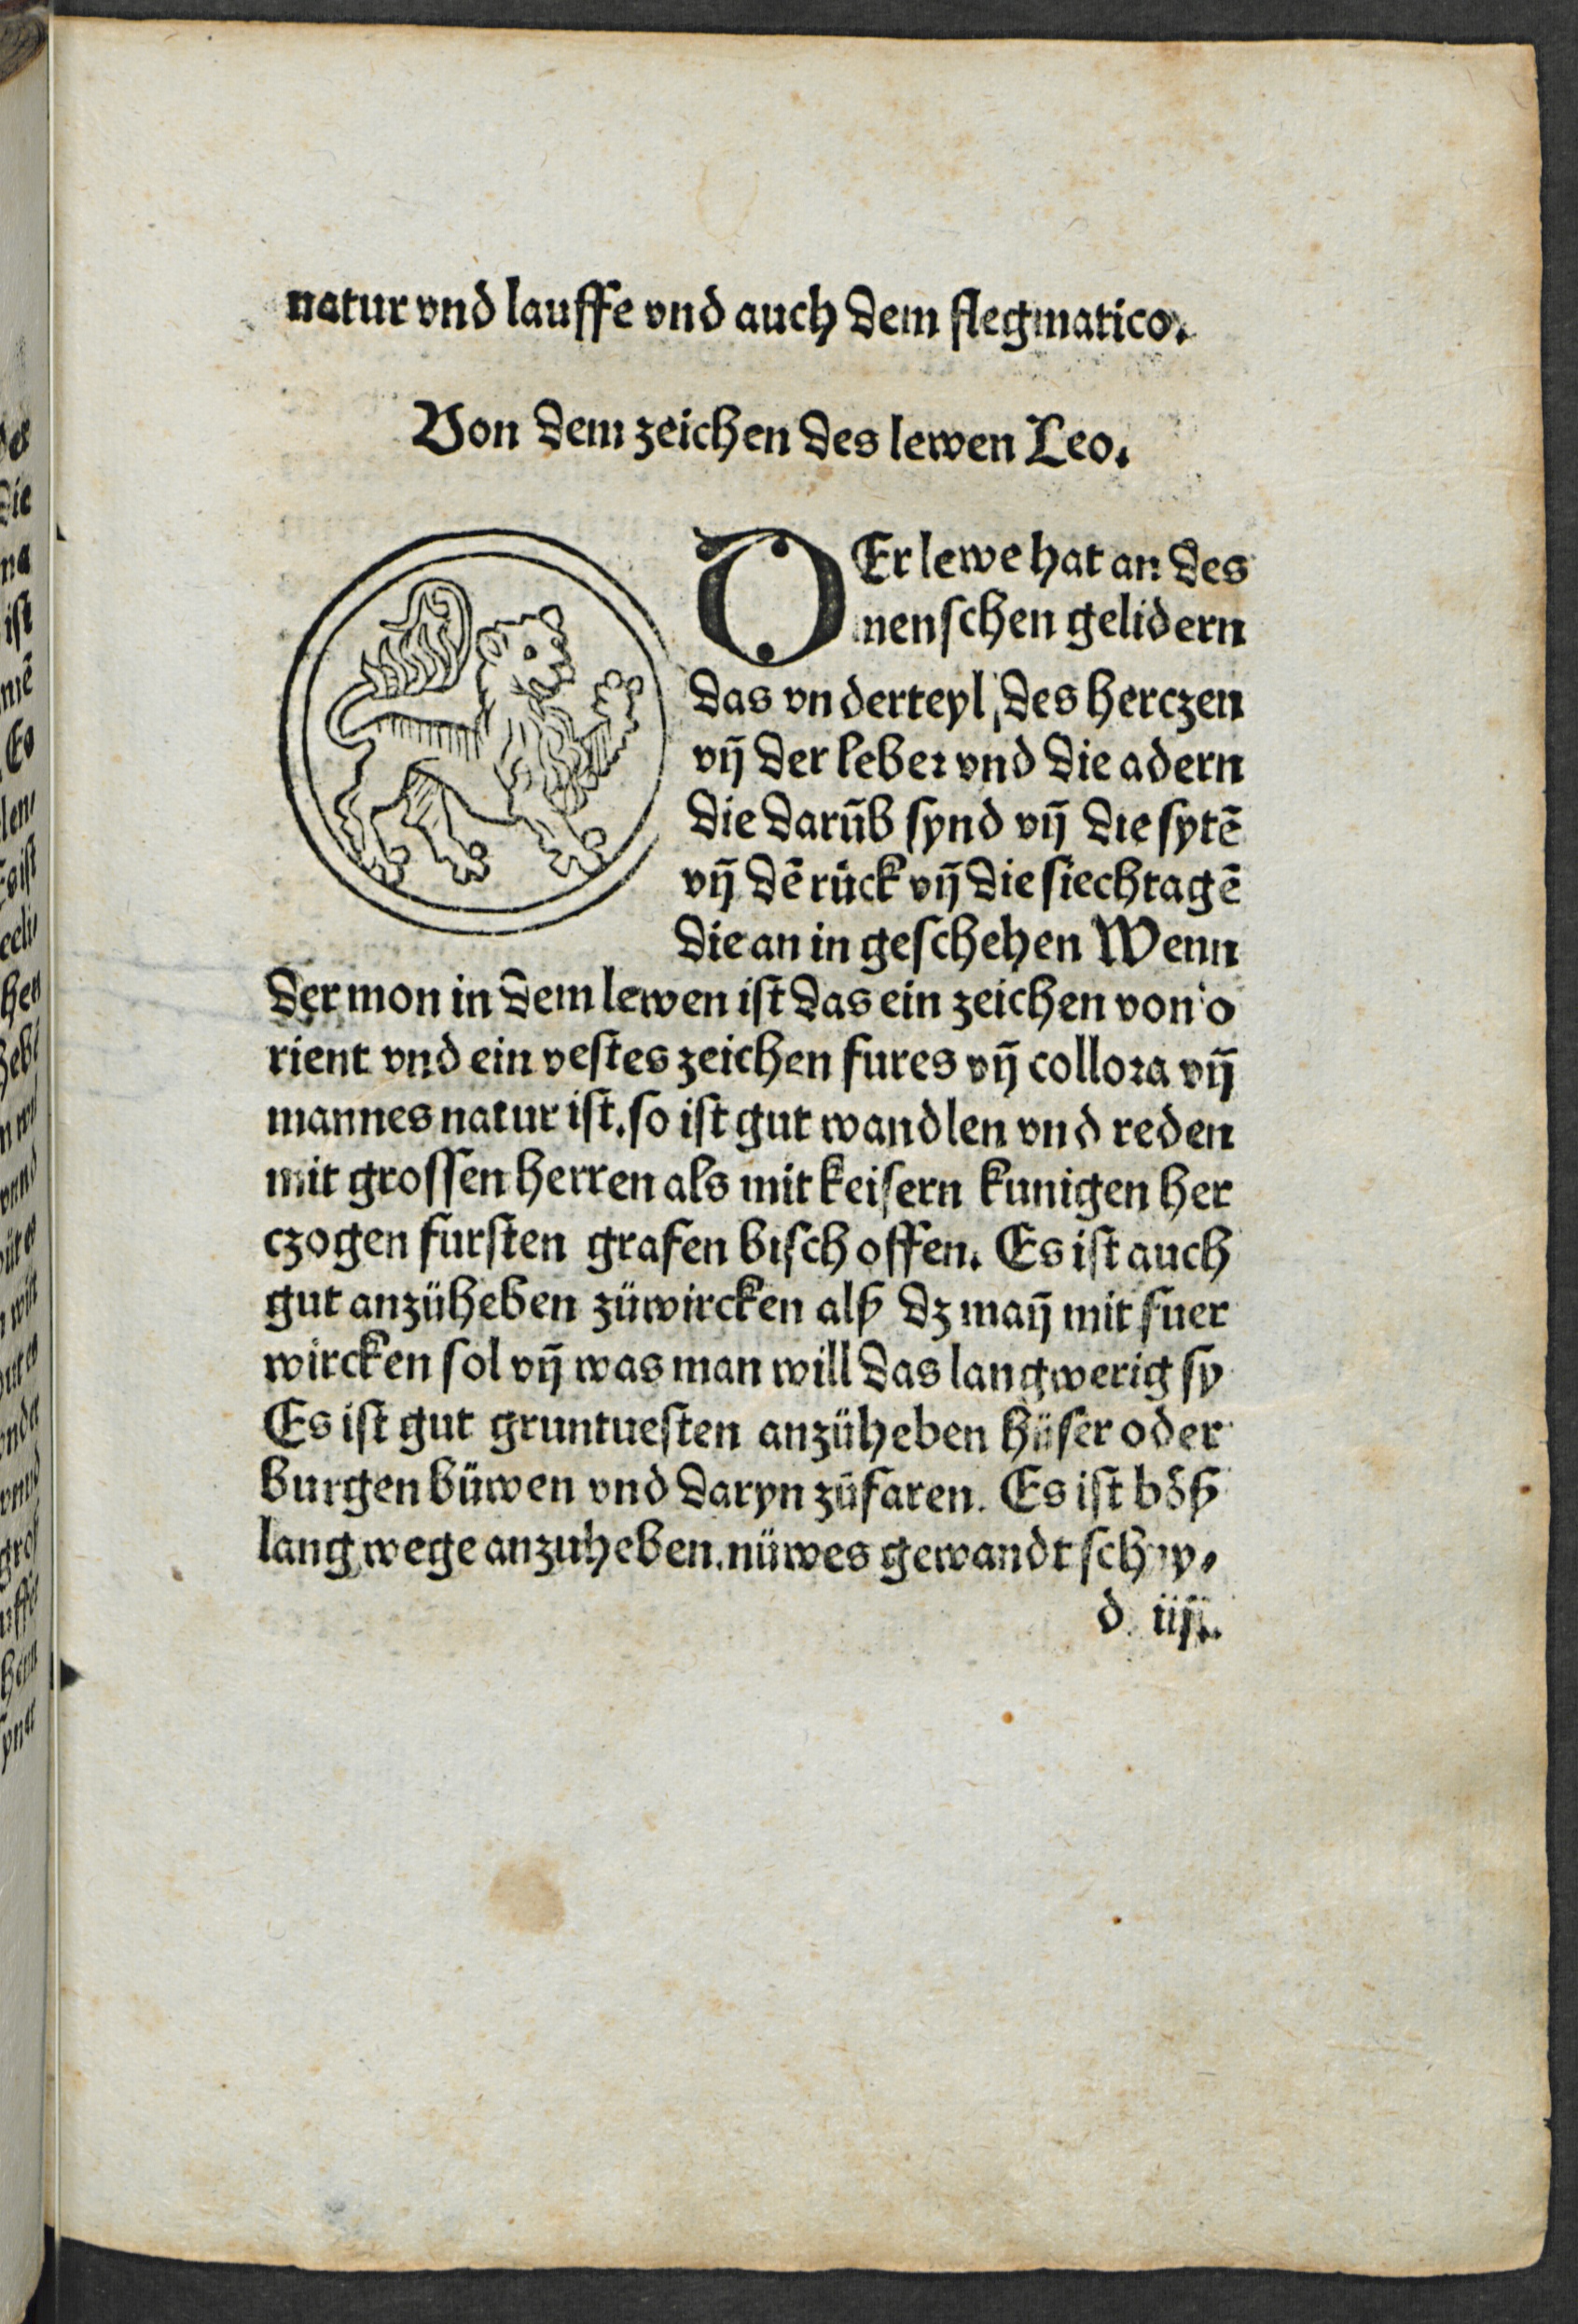 natur vnd lauffe vnd auch dem flegmatico.
Von dem zeichen des lewen Leo.
DEr lewe hat an des
menschen gelidern
das vnderteyl des herczen
vñ der leber vnd die adern
die darūb synd vñ die sytē
vñ dē rück vñ die siechtagē
die an in geschehen Wenn
der mon in dem lewen ist das ein zeichen von o
rient vnd ein vestes zeichen fures vñ collora vñ
mannes natur ist. so ist gut wandlen vnd reden
mit grossen herren als mit keisern kunigen her
czogen fursten grafen bischoffen. Es ist auch
gut anzüheben züwircken alß dz mañ mit fuer
wircken sol vñ was man will das langwerig sy
Es ist gut gruntuesten anzüheben hüser oder
burgen büwen vnd daryn züfaren. Es ist böß
lang wege anzuheben. nüwes gewandt
d iiij.